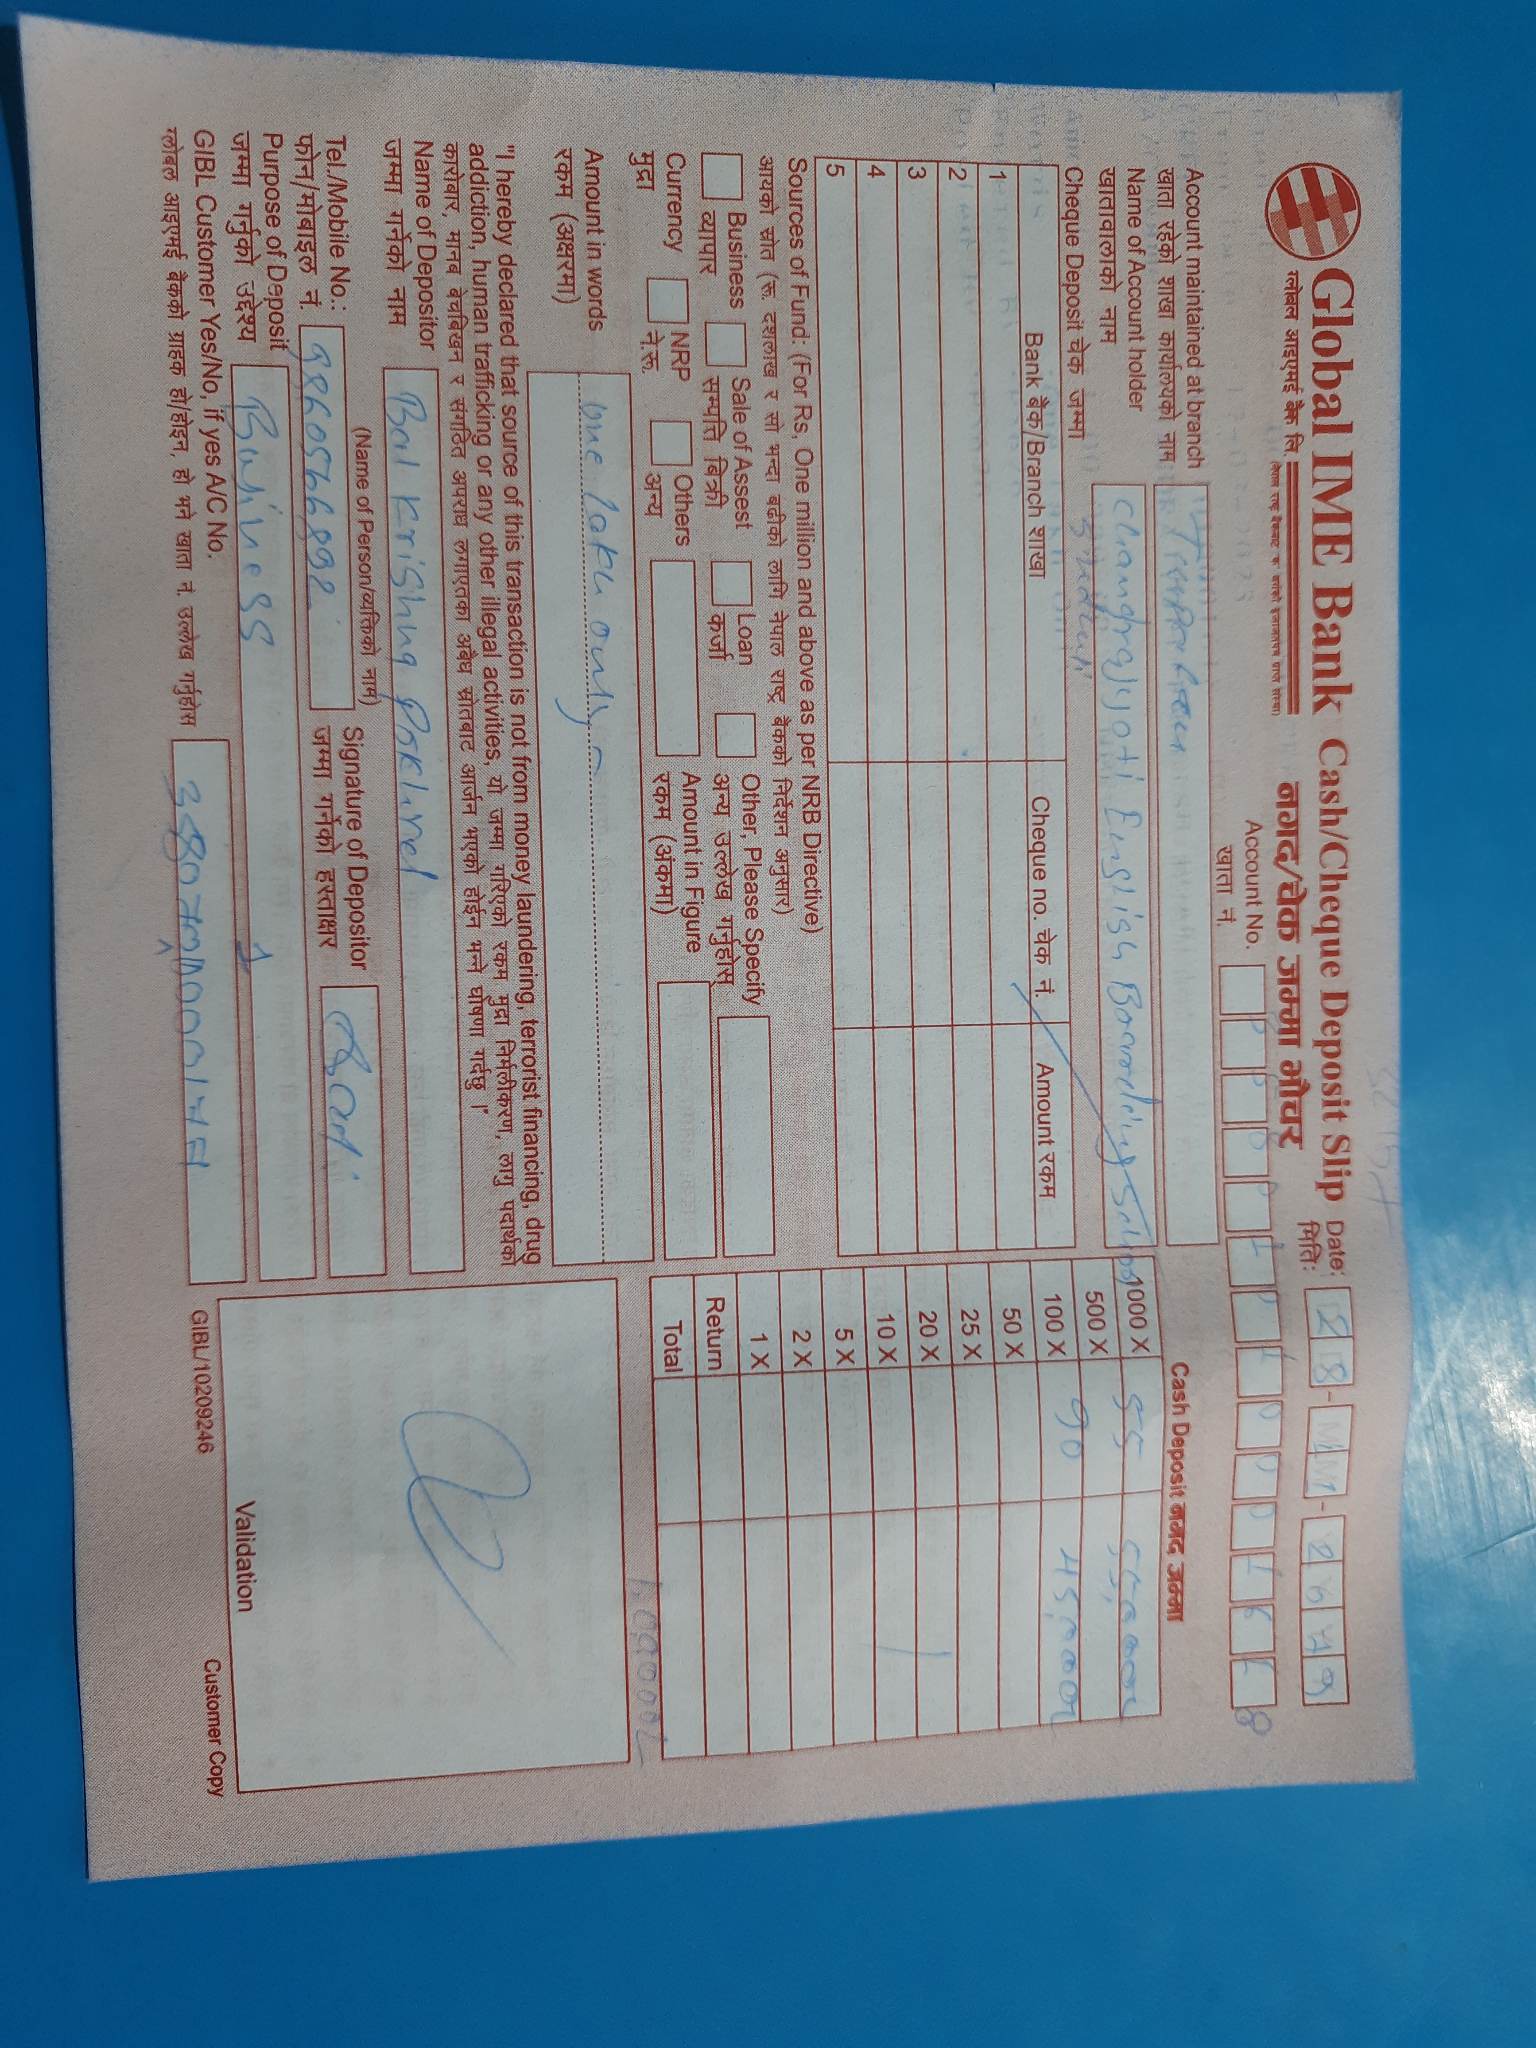 Global IME Bank
ग्लोबल आइएमई बैंक लि.
(नेपाल राष्ट्र बैंकबाट 'क' वर्गको इजाजतपत्र प्राप्त संस्था)
Cash/Cheque Deposit Slip
नगद/चेक जम्मा भौचर
Date: 28-11-2079
मितिः
Account No.
खाता नं.
Account maintained at branch
खाता रहेको शाखा कार्यालयको नाम
Name of Account holder Chandrajyoti English Boarding School
खातावालाको नाम
Cheque Deposit चेक जम्मा
Bank बैंक/Branch शाखा Cheque no. चेक नं. Amount रकम
1
2
3
4
5
Cash Deposit नगद जम्मा
1000 X 55 55,000/-
500 X 90 45,000/-
100 X
50 X
25 X
20 X
10 X
5 X
2 X
1 X
Return
Total
Sources of Fund: (For Rs, One million and above as per NRB Directive)
आयको स्रोत (रू. दशलाख र सो भन्दा बढीको लागि नेपाल राष्ट्र बैंकको निर्देशन अनुसार)
Business Sale of Assest Loan Other, Please Specify
व्यापार सम्पत्ति बिक्री कर्जा अन्य उल्लेख गर्नुहोस्
Currency NRP Others Amount in Figure
मुद्रा ने.रू. अन्य रकम (अंकमा)
Amount in words one lakh only
रकम (अक्षरमा)
"I hereby declared that source of this transaction is not from money laundering, terrorist financing, drug
addiction, human trafficking or any other illegal activities, यो जम्मा गरिएको रकम मुद्रा निर्मलीकरण, लागु पदार्थको
कारोबार, मानब बेचबिखन र संगठित अपराध लगाएतका अबैध स्रोतबाट आर्जन भएको होईन भन्ने घोषणा गर्दछु ।"
Name of Depositor Bal Krishna Pokhrel
जम्मा गर्नेको नाम
(Name of Person/व्यक्तिको नाम)
Tel./Mobile No.: 9860566892
फोन/मोबाइल नं.
Signature of Depositor
जम्मा गर्नेको हस्ताक्षर
Purpose of Deposit Business
जम्मा गर्नुको उद्देश्य
GIBL Customer Yes/No, if yes A/C No.
ग्लोबल आइएमई बैंकको ग्राहक हो/होइन, हो भने खाता नं. उल्लेख गर्नुहोस
Validation
GIBL/10209246
Customer Copy